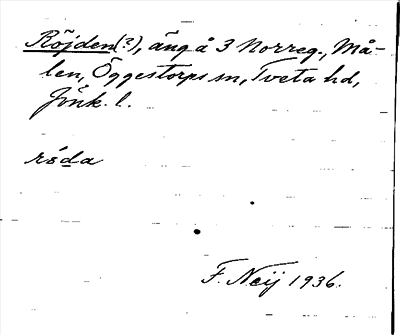 Röjden(?), äng å 3 Norreg., Må-
len, Öggestorps sn, Tveta hd,
Jönk. l.
róda
F. Neij 1936.